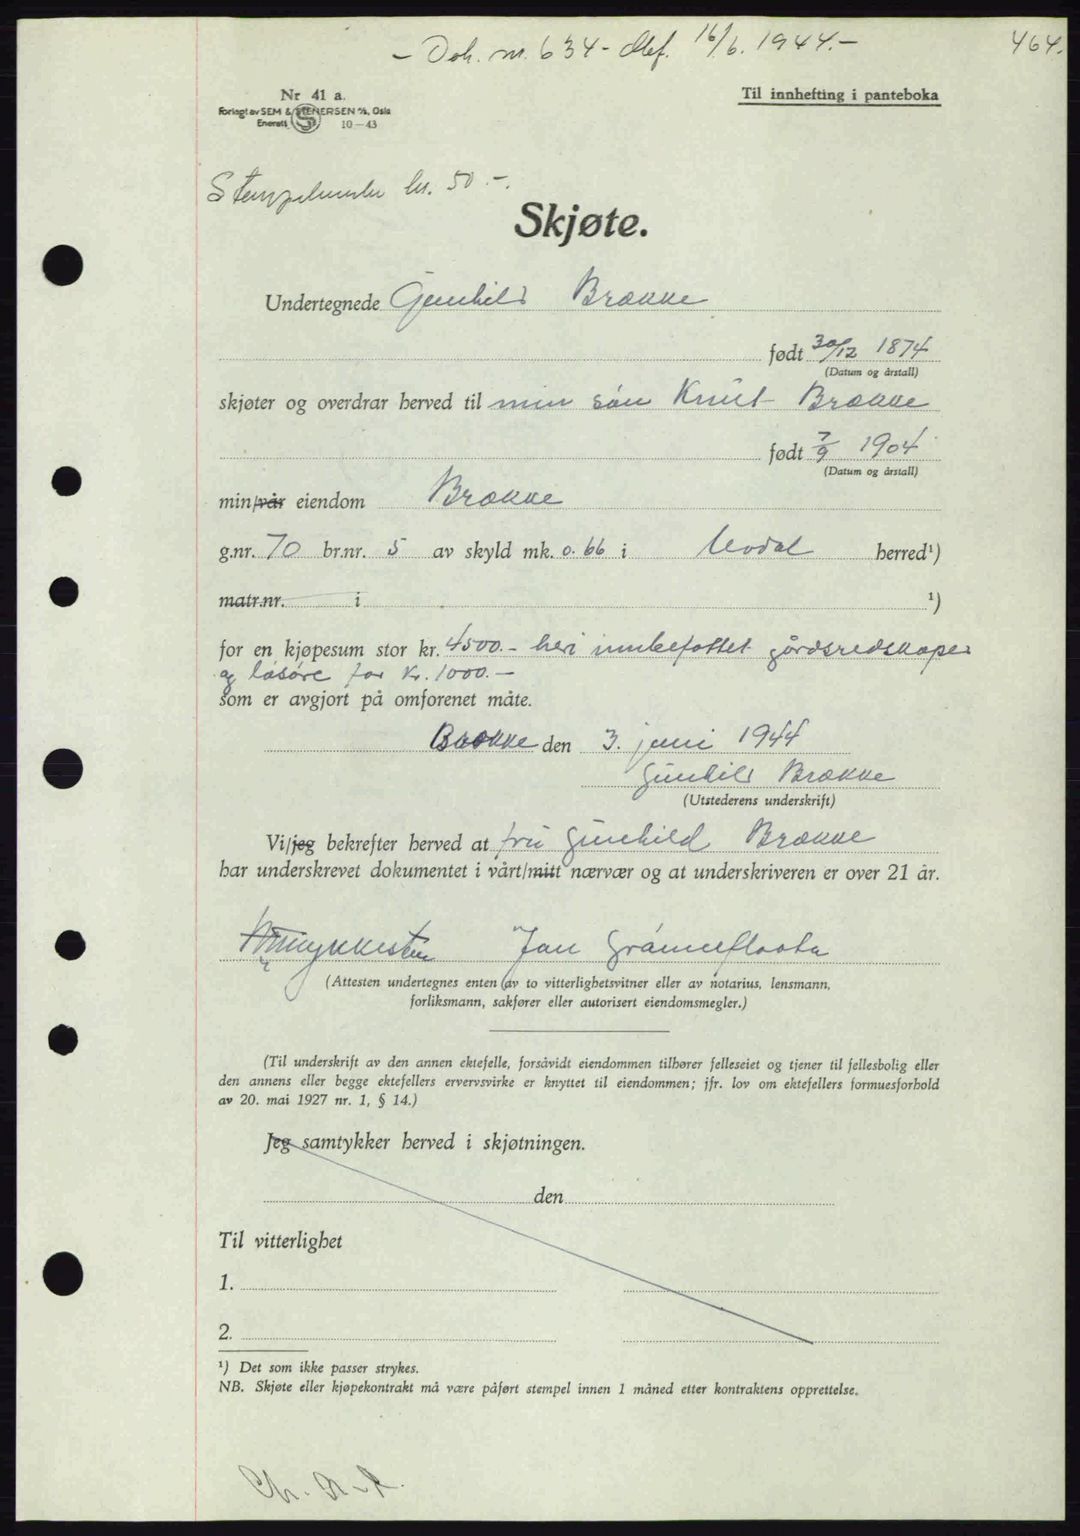 - Dok. nr. 634 - Mef. 16/6. 1944. -
464.
Nr 41 a.
Forlagt av SEM & STENERSEN A/S, Oslo
Enerett 10-43
Til innhefting i panteboka
Stempelmerke kr. 50.-.
Skjøte.
Undertegnede Gunhild Brække
født 30/12 1874
(Datum og årstall)
skjøter og overdrar herved til min sön Knut Brække
født 7/9 1904
(Datum og årstall)
min/vår eiendom Brække
g.nr. 70 br.nr. 5 av skyld mk. 0.66 i Uvdal herred¹)
matr.nr. i ¹)
for en kjøpesum stor kr. 4500.- heri innbefattet gårdsredskaper
og løsøre for kr. 1000.-
som er avgjort på omforenet måte.
Brække den 3. juni 1944
Gunhild Brække
(Utstederens underskrift)
Vi/jeg bekrefter herved at fru Gunhild Brække
har underskrevet dokumentet i vårt/mitt nærvær og at underskriveren er over 21 år.
Jan
(Attesten undertegnes enten av to vitterlighetsvitner eller av notarius, lensmann,
forliksmann, sakfører eller autorisert eiendomsmegler.)
(Til underskrift av den annen ektefelle, forsåvidt eiendommen tilhører felleseiet og tjener til fellesbolig eller
den annens eller begge ektefellers ervervsvirke er knyttet til eiendommen; jfr. lov om ektefellers formuesforhold
av 20. mai 1927 nr. 1, § 14.)
Jeg samtykker herved i skjøtningen.
den
Til vitterlighet
1.
2.
¹) Det som ikke passer strykes.
NB. Skjøte eller kjøpekontrakt må være påført stempel innen 1 måned etter kontraktens opprettelse.